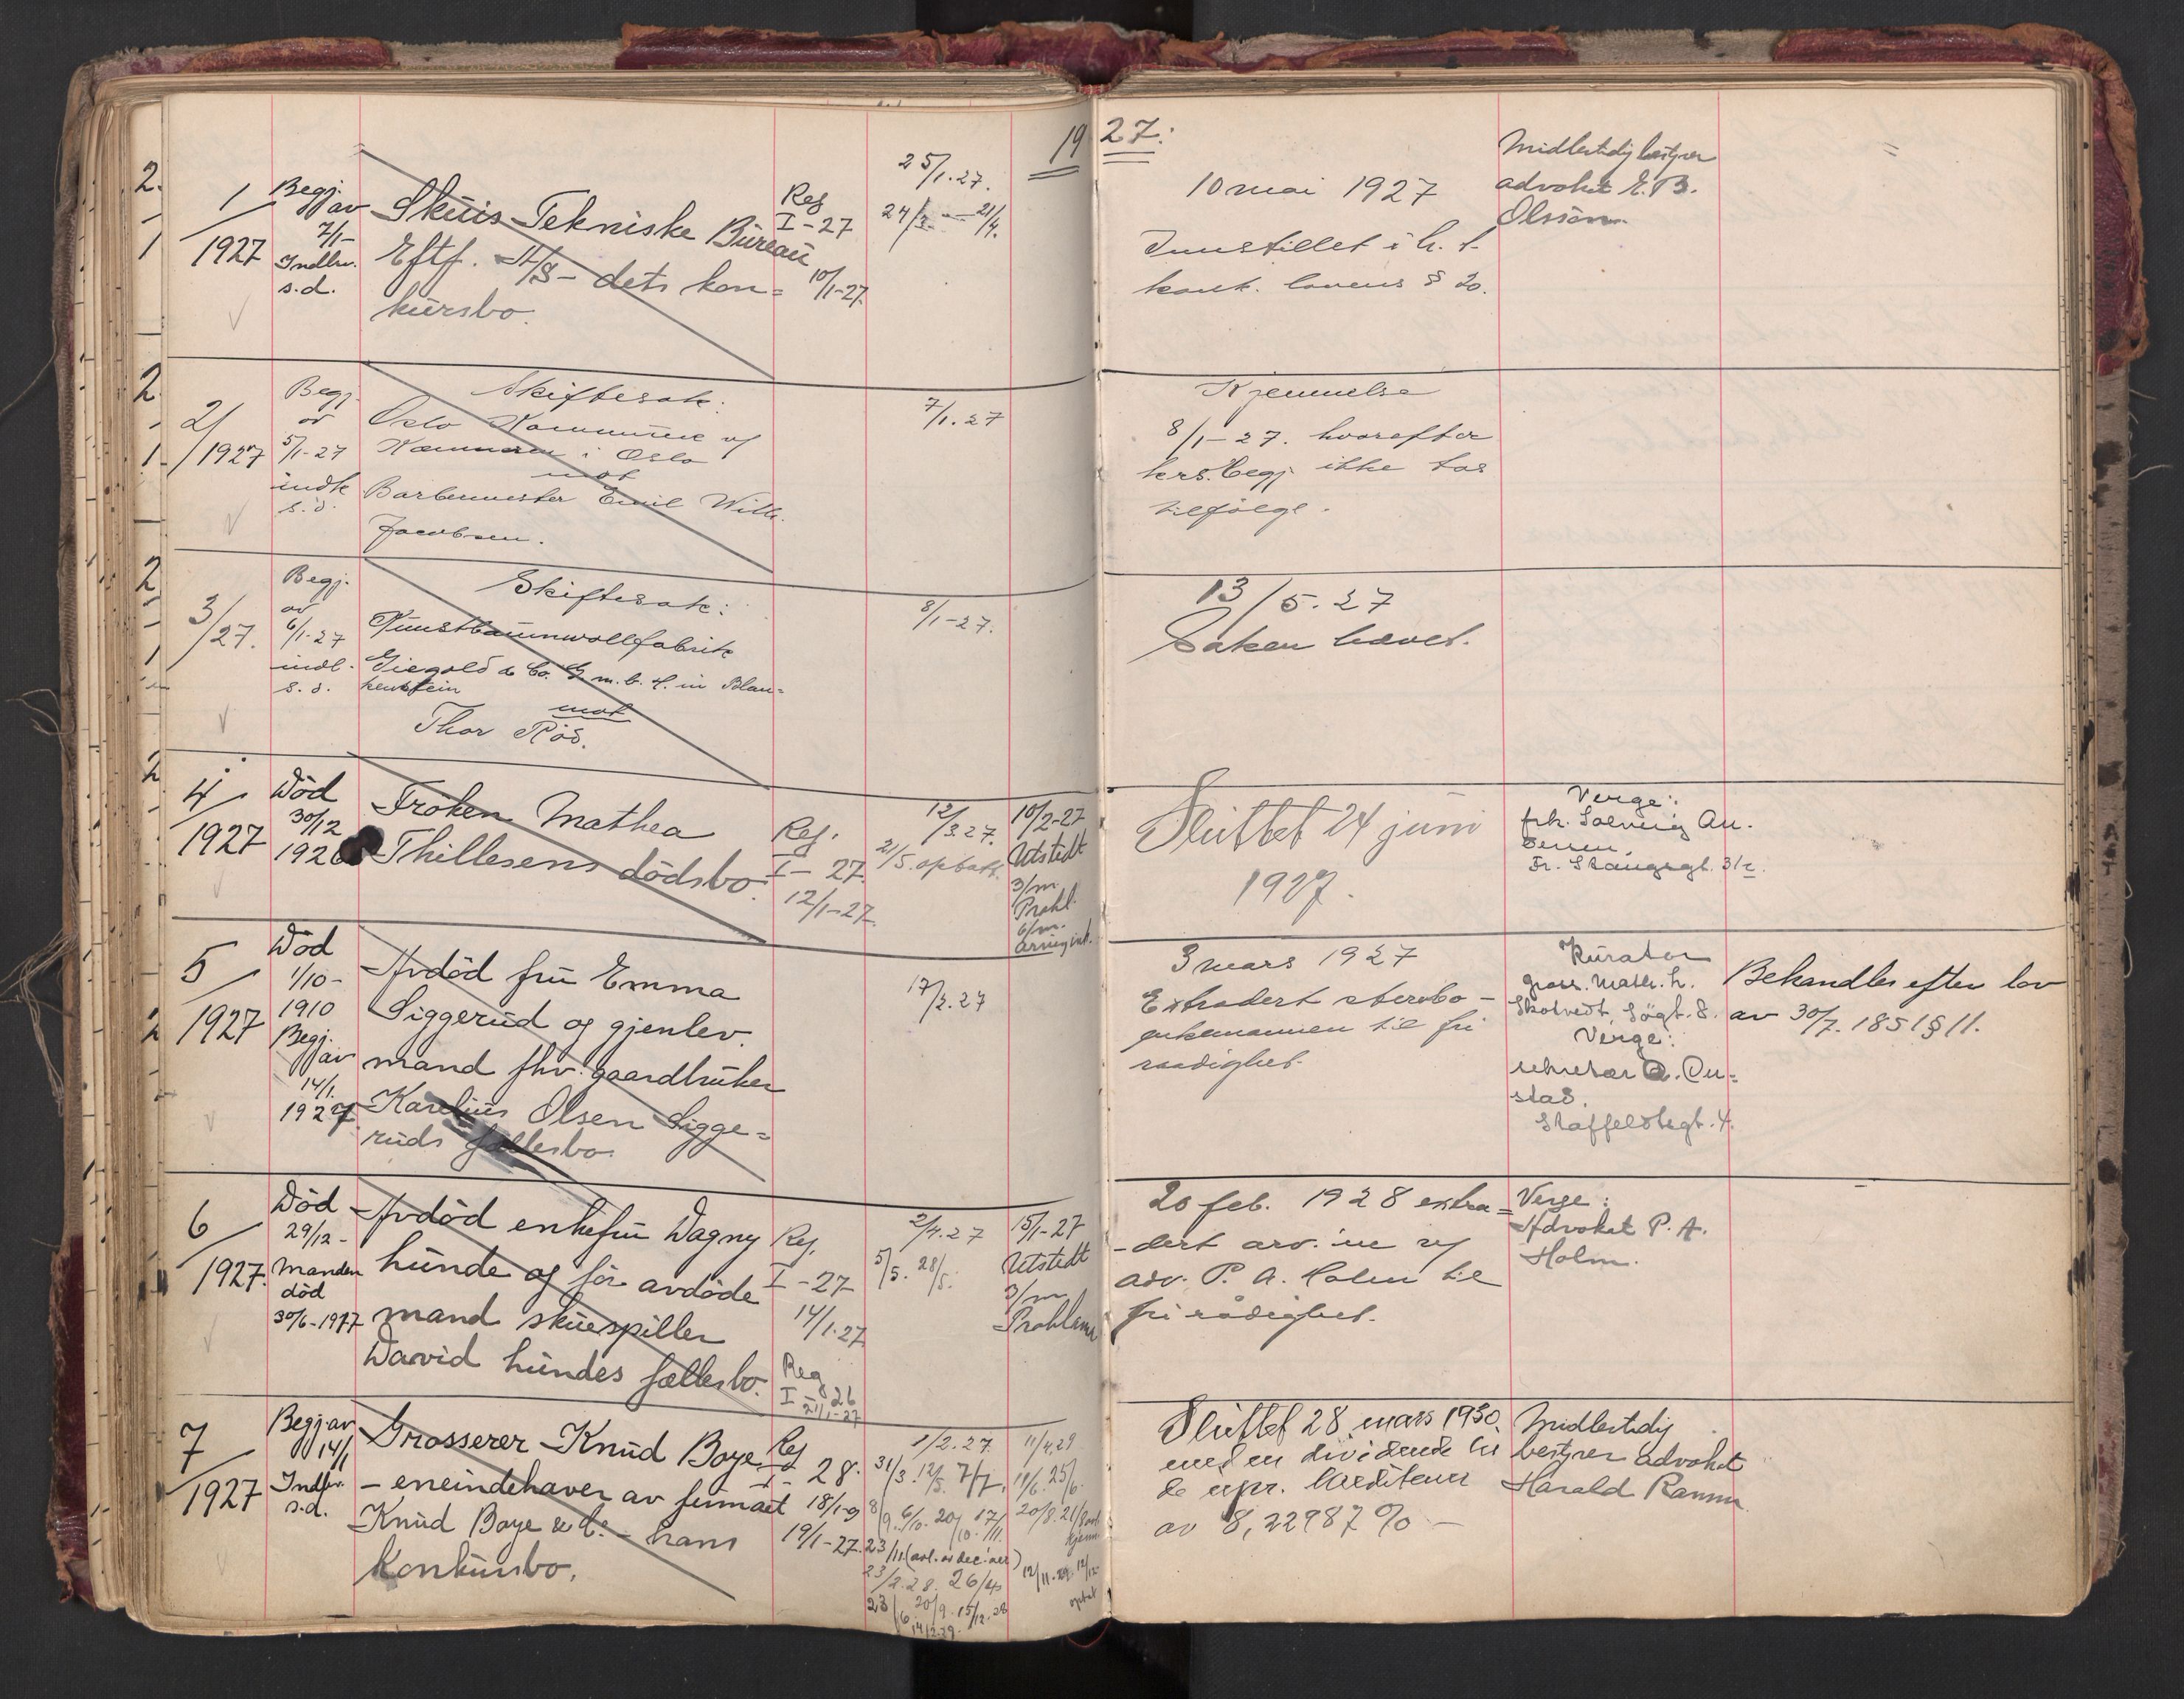 1927:
1/1927
Begj. av 7/1-
Indlev. s.d.
Skuis Tekniske Büreau
Eftf. A/S - dets kon=
kursbo.
Reg I-27
10/1-27.
25/1.27.
24/3 — 21/4.
10 mai 1927
Innstillet i h. t.
konk. lovens § 20.
Midlertidig bestyrer
advokat E. B.
Olsson
2/1927
Begj. av 5/1-27
indk s.d.
Skiftesak:
Oslo Kommune v/
Kæmneren i Oslo
mot
Barbermester Emil Wilh.
Jacobsen.
7/1.27
Kjennelse
8/1-27. hvorefter
krs.begj. ikke tas
tilfølge.
3/27.
Begj. av 6/1-27
indl. s.d.
Skiftesak:
Kunstbaumwollfabrik
Giegold & Co. G.m.b.H. in Blan=
kenstein
mot
Thor Röd.
8/1-27.
13/5.27
Saken hævet.
4/1927
Död 30/12 1926
Fröken Mathea
Thillesens dödsbo.
Reg. I-27.
12/1-27.
12/3.27.
21/5. opbatt.
10/2-27
Utstedt
3/m.
Prokl.
6/m.
arving ink.
Sluttet 24 juni
1927.
Verge:
frk. Solveig An.
dersen.
Fr. Stangsgt. 31
5/1927
Död 1/10-1910
Begj. av 14/1. 1927
Avdöd frü Emma
Siggerüd og gjenlev.
mand fhv. gaardbrüker
Karelius Olsen Sigge=
rüds fællesbo.
17/2.27
3 mars 1927
Extradert sterbo-
enkemannen til fri
raadighet.
Kurator
gross. Math. H.
Skotvedt, Sögt. 8.
Verge:
sekretær A. On=
stad.
Staffeldtsgt. 4.
Behandles efter lov
av 30/7. 1851 § 11.
6/1927.
Död 29/12-
Manden död
30/6-1917
Avdöd enkefrü Dagny
Hünde og för avdöde
mand skuespiller
David Hündes fællesbo.
Reg. I-27
14/1.27
Reg I-26
21/1-27
2/4.27
5/5. 28/5.
15/1-27
Utstedt
3/m
Proklama
20 feb. 1928 extra=
-dert arv.ne v/
adv. P. A. Holm til
fri rådighet.
Verge:
Advokat P. A.
Holm.
7/1927
Begj av 14/1
Indlev. s.d.
Grosserer Knud Boye
- eneindehaver av firmaet
Knud Boye & Co. - hans
Konkursbo.
Reg I-28.
18/1-9
19/1-27.
1/2.27
31/3. 12/5. 7/7.
8/9. 6/10. 20/10. 17/11.
23/11 (avl. av dec. aar)
23/2.28. 26/4
23/6. 20/9. 15/12.28
14/2.29.
11/4.29
11/6. 25/6.
20/8. 21/8
kjenn.
12/11.29. 12/12
opbat
Sluttet 28 mars 1930.
med en dividende til
de upr. kreditorer
av 8,22987 % -
Midlertidig
bestyrer advokat
Harald Ramm